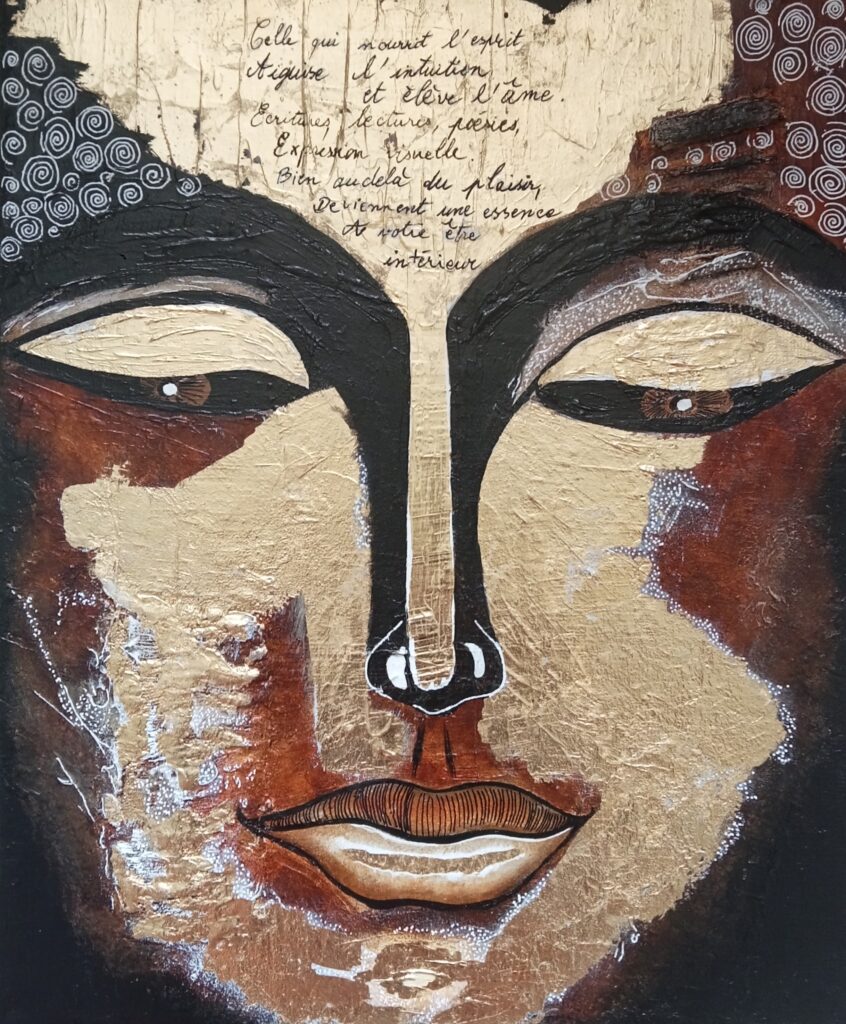 Celle qui nourrit l'esprit
Aiguise l'intuition
et élève l'âme.
Ecritures, lectures, poésies,
Expression visuelle.
Bien au delà du plaisir,
Deviennent une essence
A votre être
intérieur